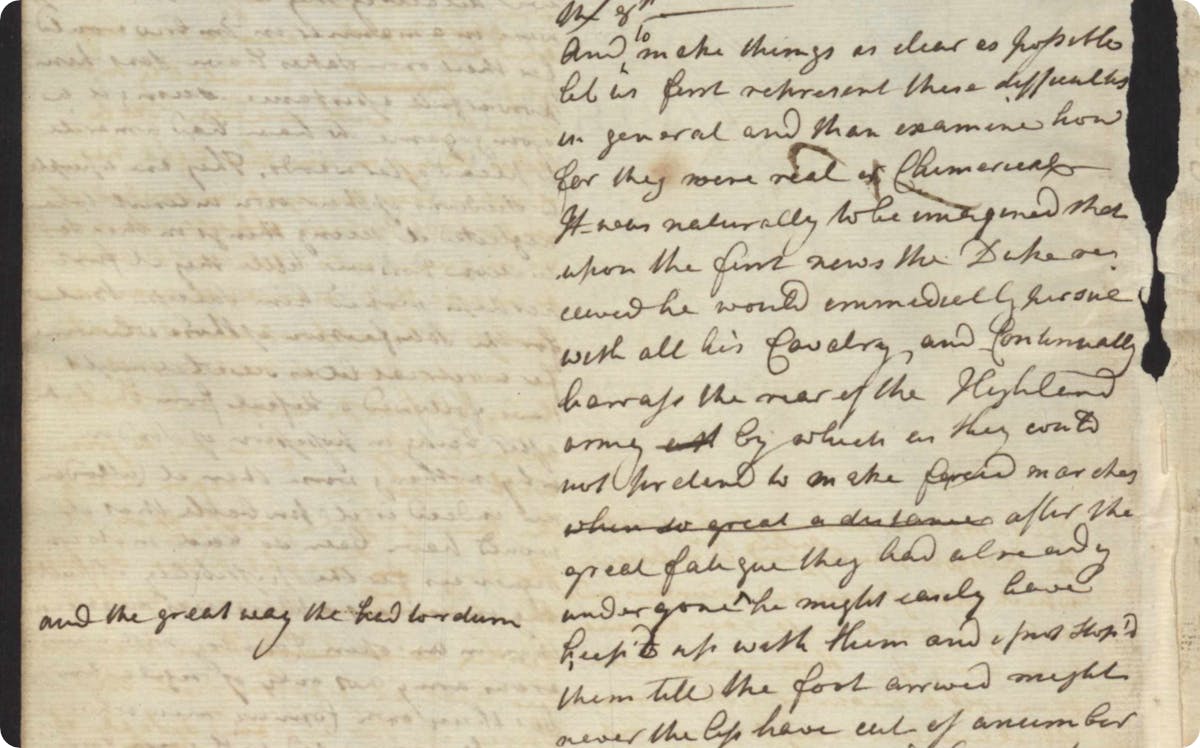 And to make things as clear as possible
let us first represent these difficultys
in general and than examine how
far they were real or Chimerical
It was naturally to be imagined that
upon the first news the Duke re-
ceived he would immedietly pursue
with all his Cavalry, and Continually
harrass the rear of the Highland
army by which as they could
not pretend to make forced marches
when so great a distance after the
great fatigue they had already
undergone he might easely have
and the great way the had to return
keep'd up with them and if not stop'd
them till the foot arrived might
never the less have cut of a number